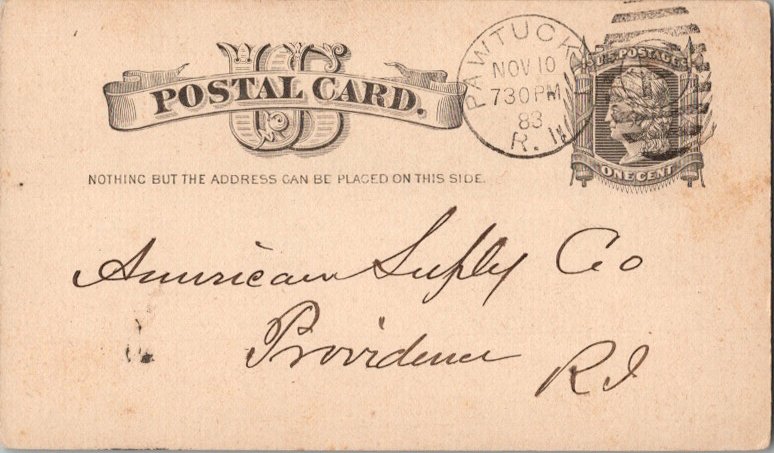 US
POSTAL CARD.
NOTHING BUT THE ADDRESS CAN BE PLACED ON THIS SIDE.
PAWTUCK
NOV 10
730PM
83
R. I.
U.S. POSTAGE
ONE CENT
American Supply Co
Providence
R.I